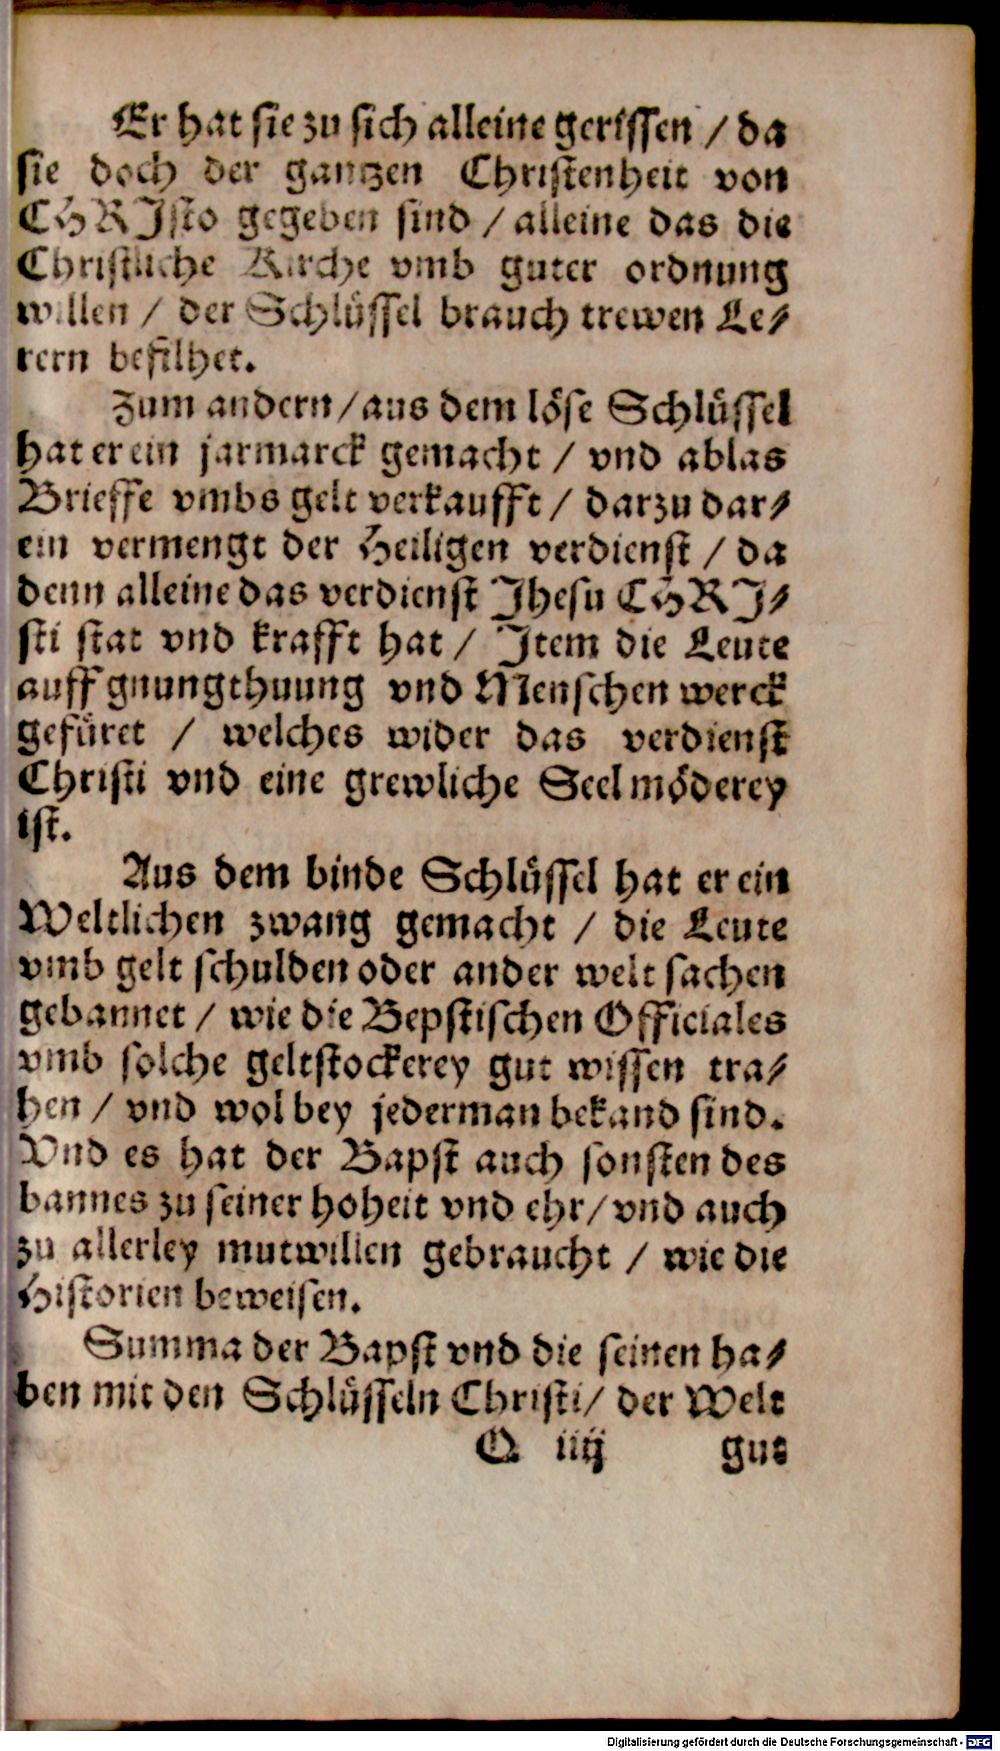 Er hat sie zu sich alleine gerissen / da
sie doch der gantzen Christenheit von
CHRJsto gegeben sind / alleine das die
Christliche Kirche vmb guter ordnung
willen / der Schlüssel brauch trewen Le-
rern befilhet.
Zum andern / aus dem löse Schlüssel
hat er ein jarmarck gemacht / vnd ablas
Brieffe vmbs gelt verkaufft / darzu dar-
ein vermengt der Heiligen verdienst / da
denn alleine das verdienst Jhesu CHRJ-
sti stat vnd krafft hat / Jtem die Leute
auff gnungthuung vnd Menschen werck
gefüret / welches wider das verdienst
Christi vnd eine grewliche Seelmöderey
ist.
Aus dem binde Schlüssel hat er ein
Weltlichen zwang gemacht / die Leute
vmb gelt schulden oder ander welt sachen
gebannet / wie die Bepstischen Officiales
vmb solche geltstockerey gut wissen tra-
hen / vnd wol bey jederman bekand sind.
Vnd es hat der Bapst auch sonsten des
bannes zu seiner hoheit vnd ehr / vnd auch
zu allerley mutwillen gebraucht / wie die
Historien beweisen.
Summa der Bapst vnd die seinen ha-
ben mit den Schlüsseln Christi / der Welt
Q iiij gut
Digitalisierung gefördert durch die Deutsche Forschungsgemeinschaft - DFG